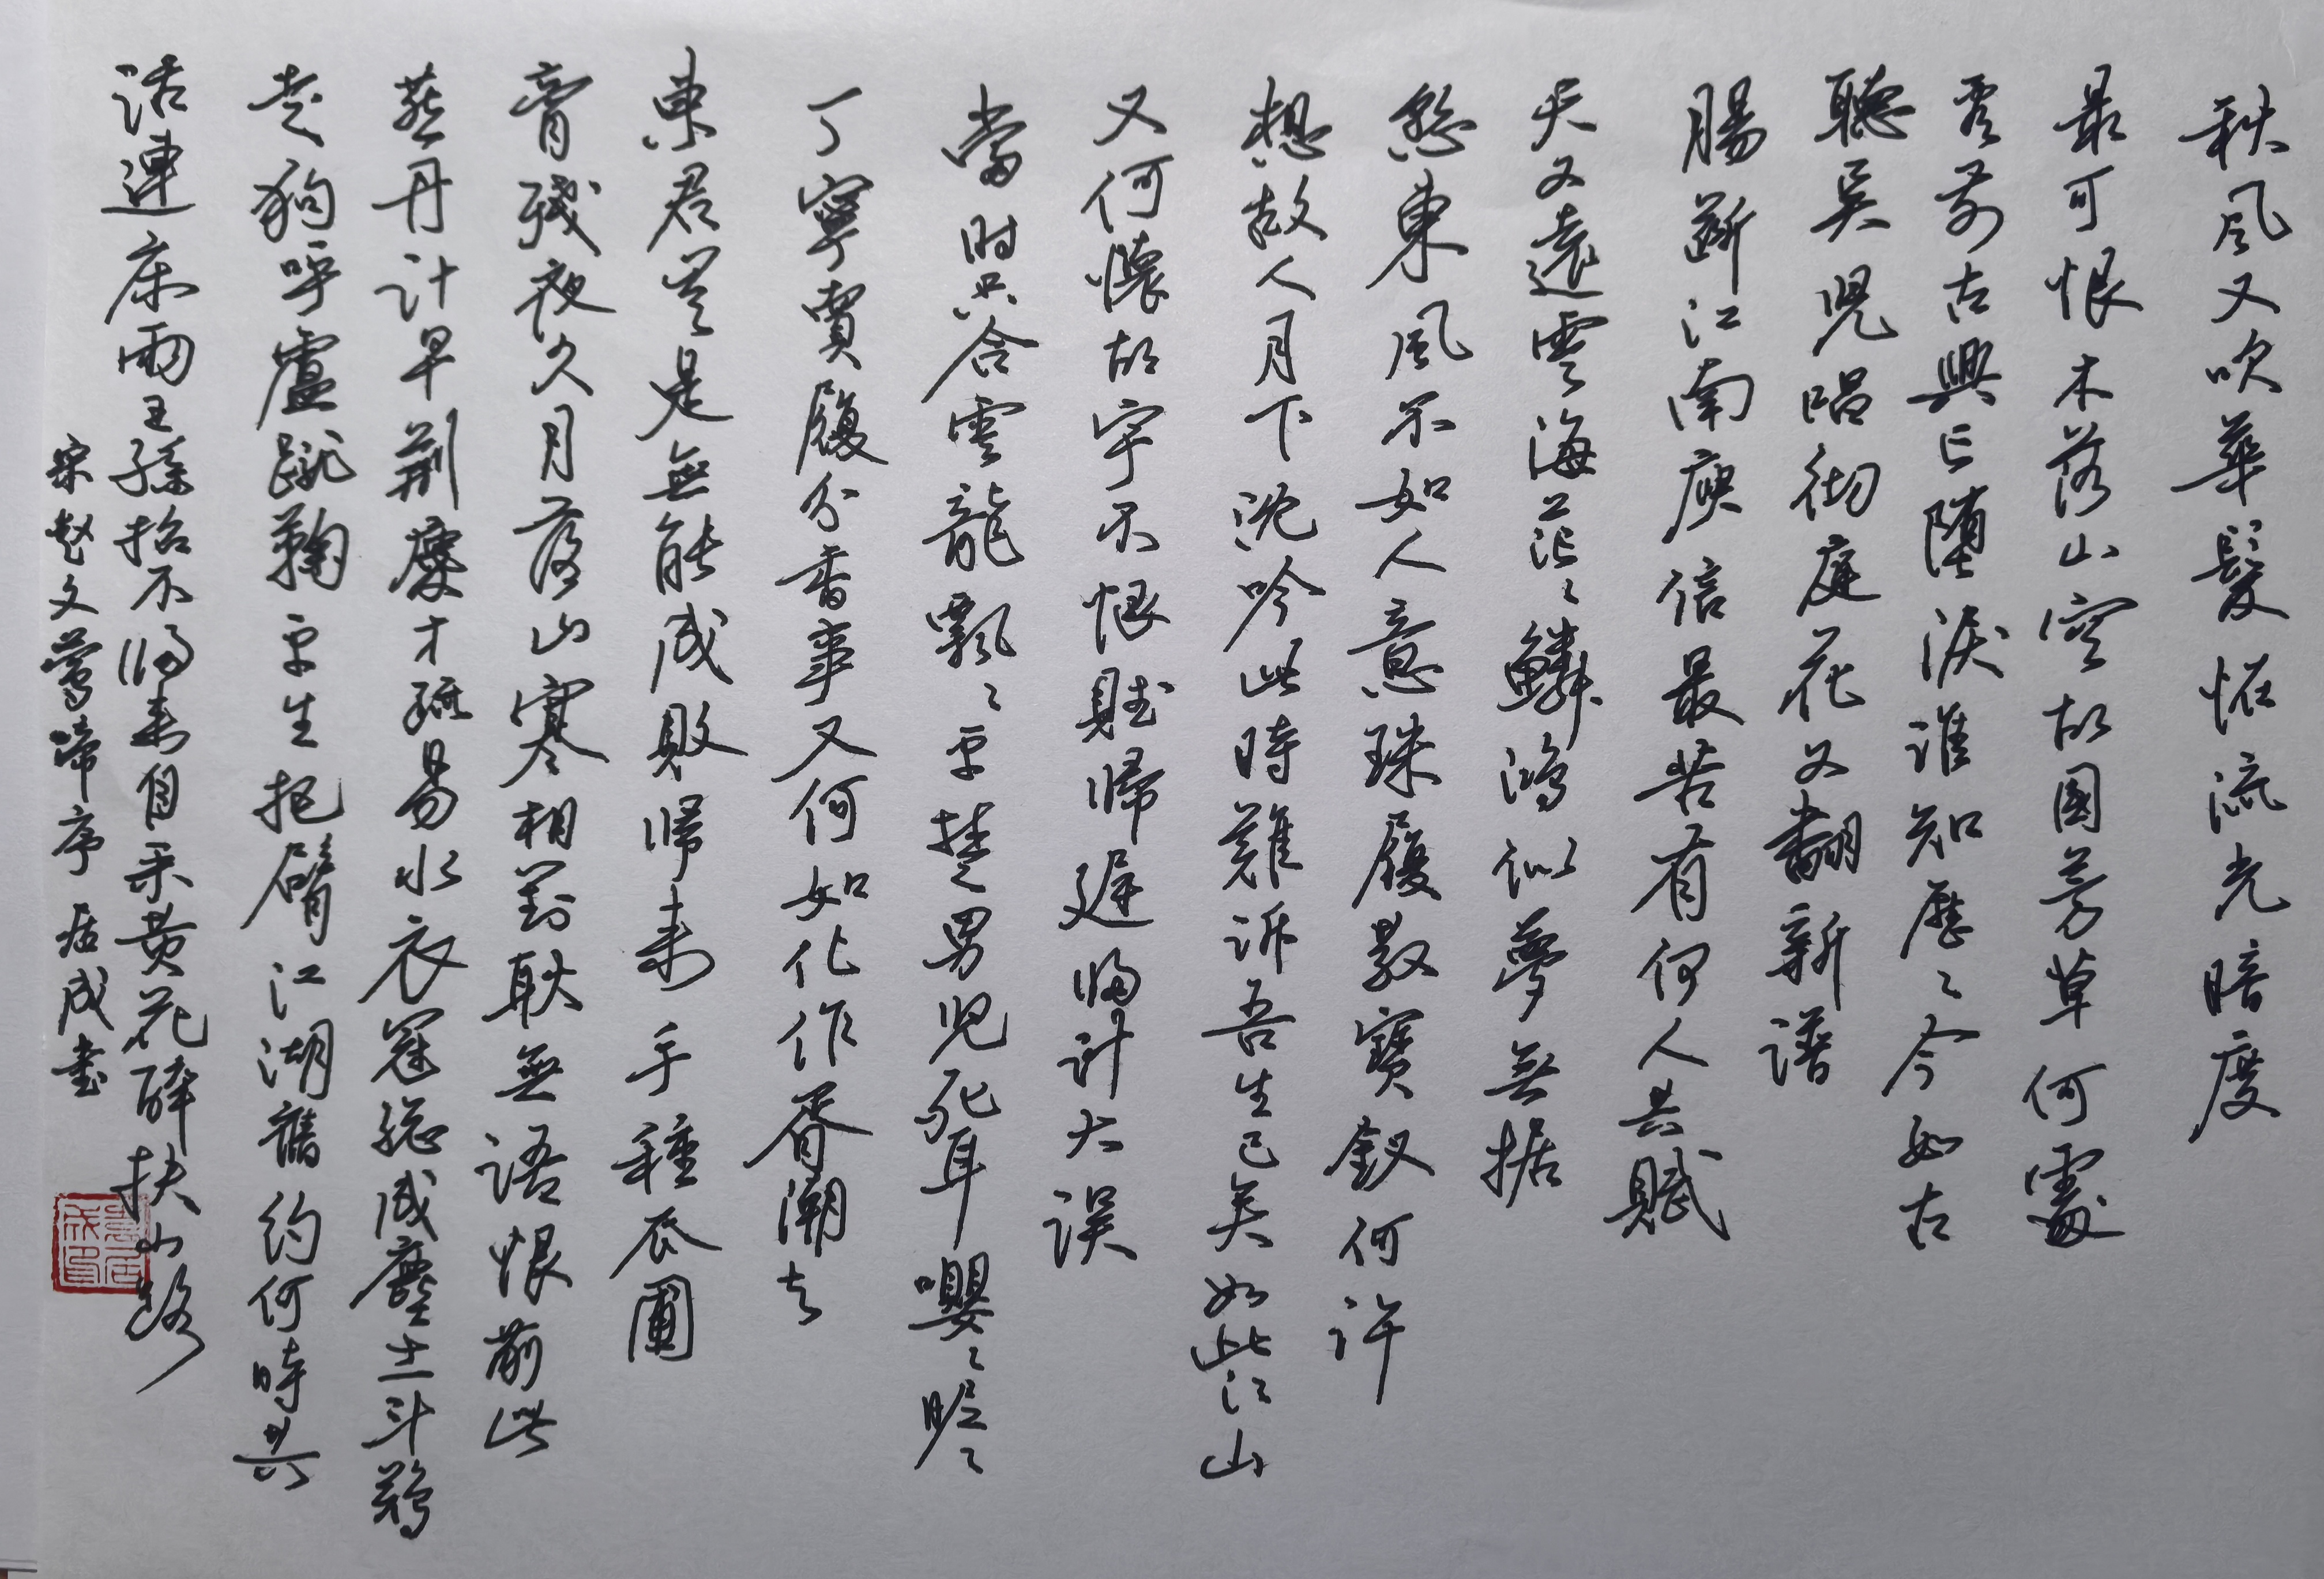 秋風又吹華髮怪流光暗度
最可恨木落山空故國芳草何處
看前古興亡堕淚誰知歷ミ今如古
聽吳兒唱徹庭花又翻新譜
腸斷江南庾信最苦有何人共賦
天又遠雲海茫ミ鱗鴻似夢無据
怨東風不如人意珠履散寶釵何許
想故人月下沈吟此時難訴吾生已矣如此江山
又何懷故宇不恨賦歸遲歸計大誤
當時只合雲龍飄ミ平楚男兒死耳嚶ミ昵ミ
丁寧賣履分香事又何如化作胥潮去
東君豈是無能成敗歸来手種瓜圃
膏殘夜久月落山寒相對耿無語恨前此
燕丹計早荆慶才疏易水衣冠總成塵土斗鷄
走狗呼盧蹴鞠平生把臂江湖舊約何時共
話連床雨王孫招不歸来自采黄花醉扶山路
宋赵文鶯啼序 居成書